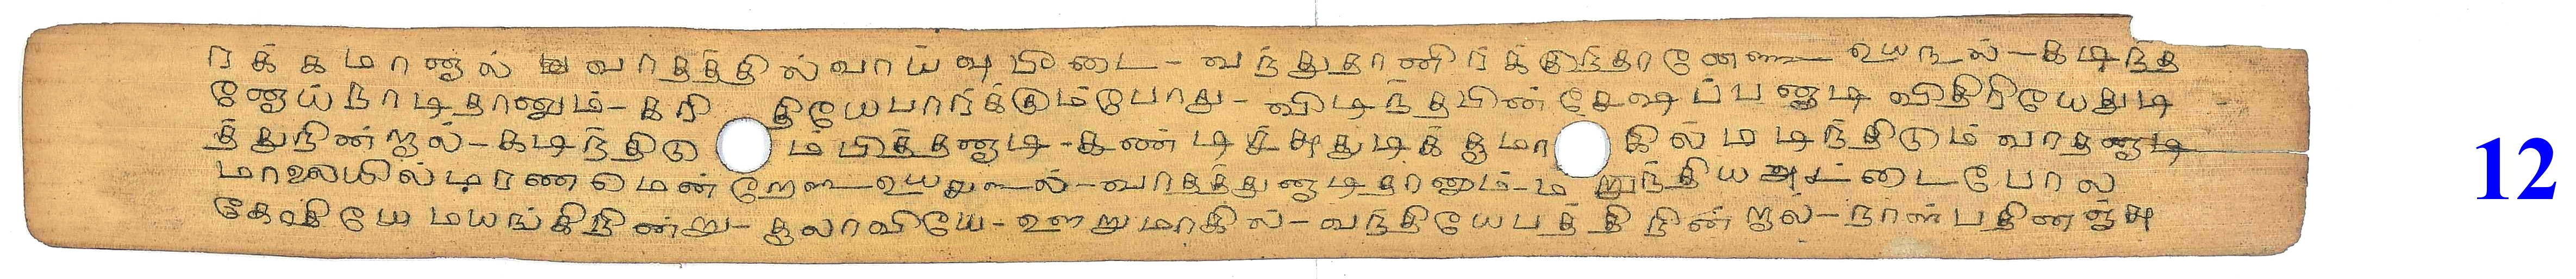 ரக்கமானால் வாதத்தில்வாய்வு மிடை - வந்துதானிர்க்குந்தானேளை உயநடல் - கடிந்த
னேய்நாடிதானும் - கறி தியேபார்க்கும்போது - விடிந்தபின் சேஷப்பனாடி விதிரியேதுடி
த்துநின்றால் - கடிந்திடு ம்பித்தனாடி - கண்டிச்சுதுடிக்குமா கில் மடிந்திடும் வாதனாடி
மாலையில்மரணமென்றேளைஉயதுடல் - வாதத்துனாடிதானும் - ம றுந்திய அட்டைபோல
கேதியே மயங்கிநின்று - குலாவியே - ஊறுமாகில் - வந்தியேபத்தி நின்றால் - நாள்பதினஞ்சு
12